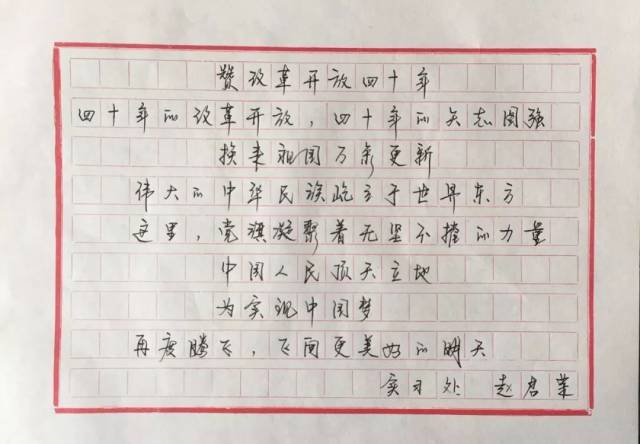 赞改革开放四十年
四十年的改革开放，四十年的矢志图强
换来祖国万象更新
伟大的中华民族屹立于世界东方
这里，党旗凝聚着无坚不摧的力量
中国人民顶天立地
为实现中国梦
再度腾飞，飞向更美好的明天
实习处 赵启业